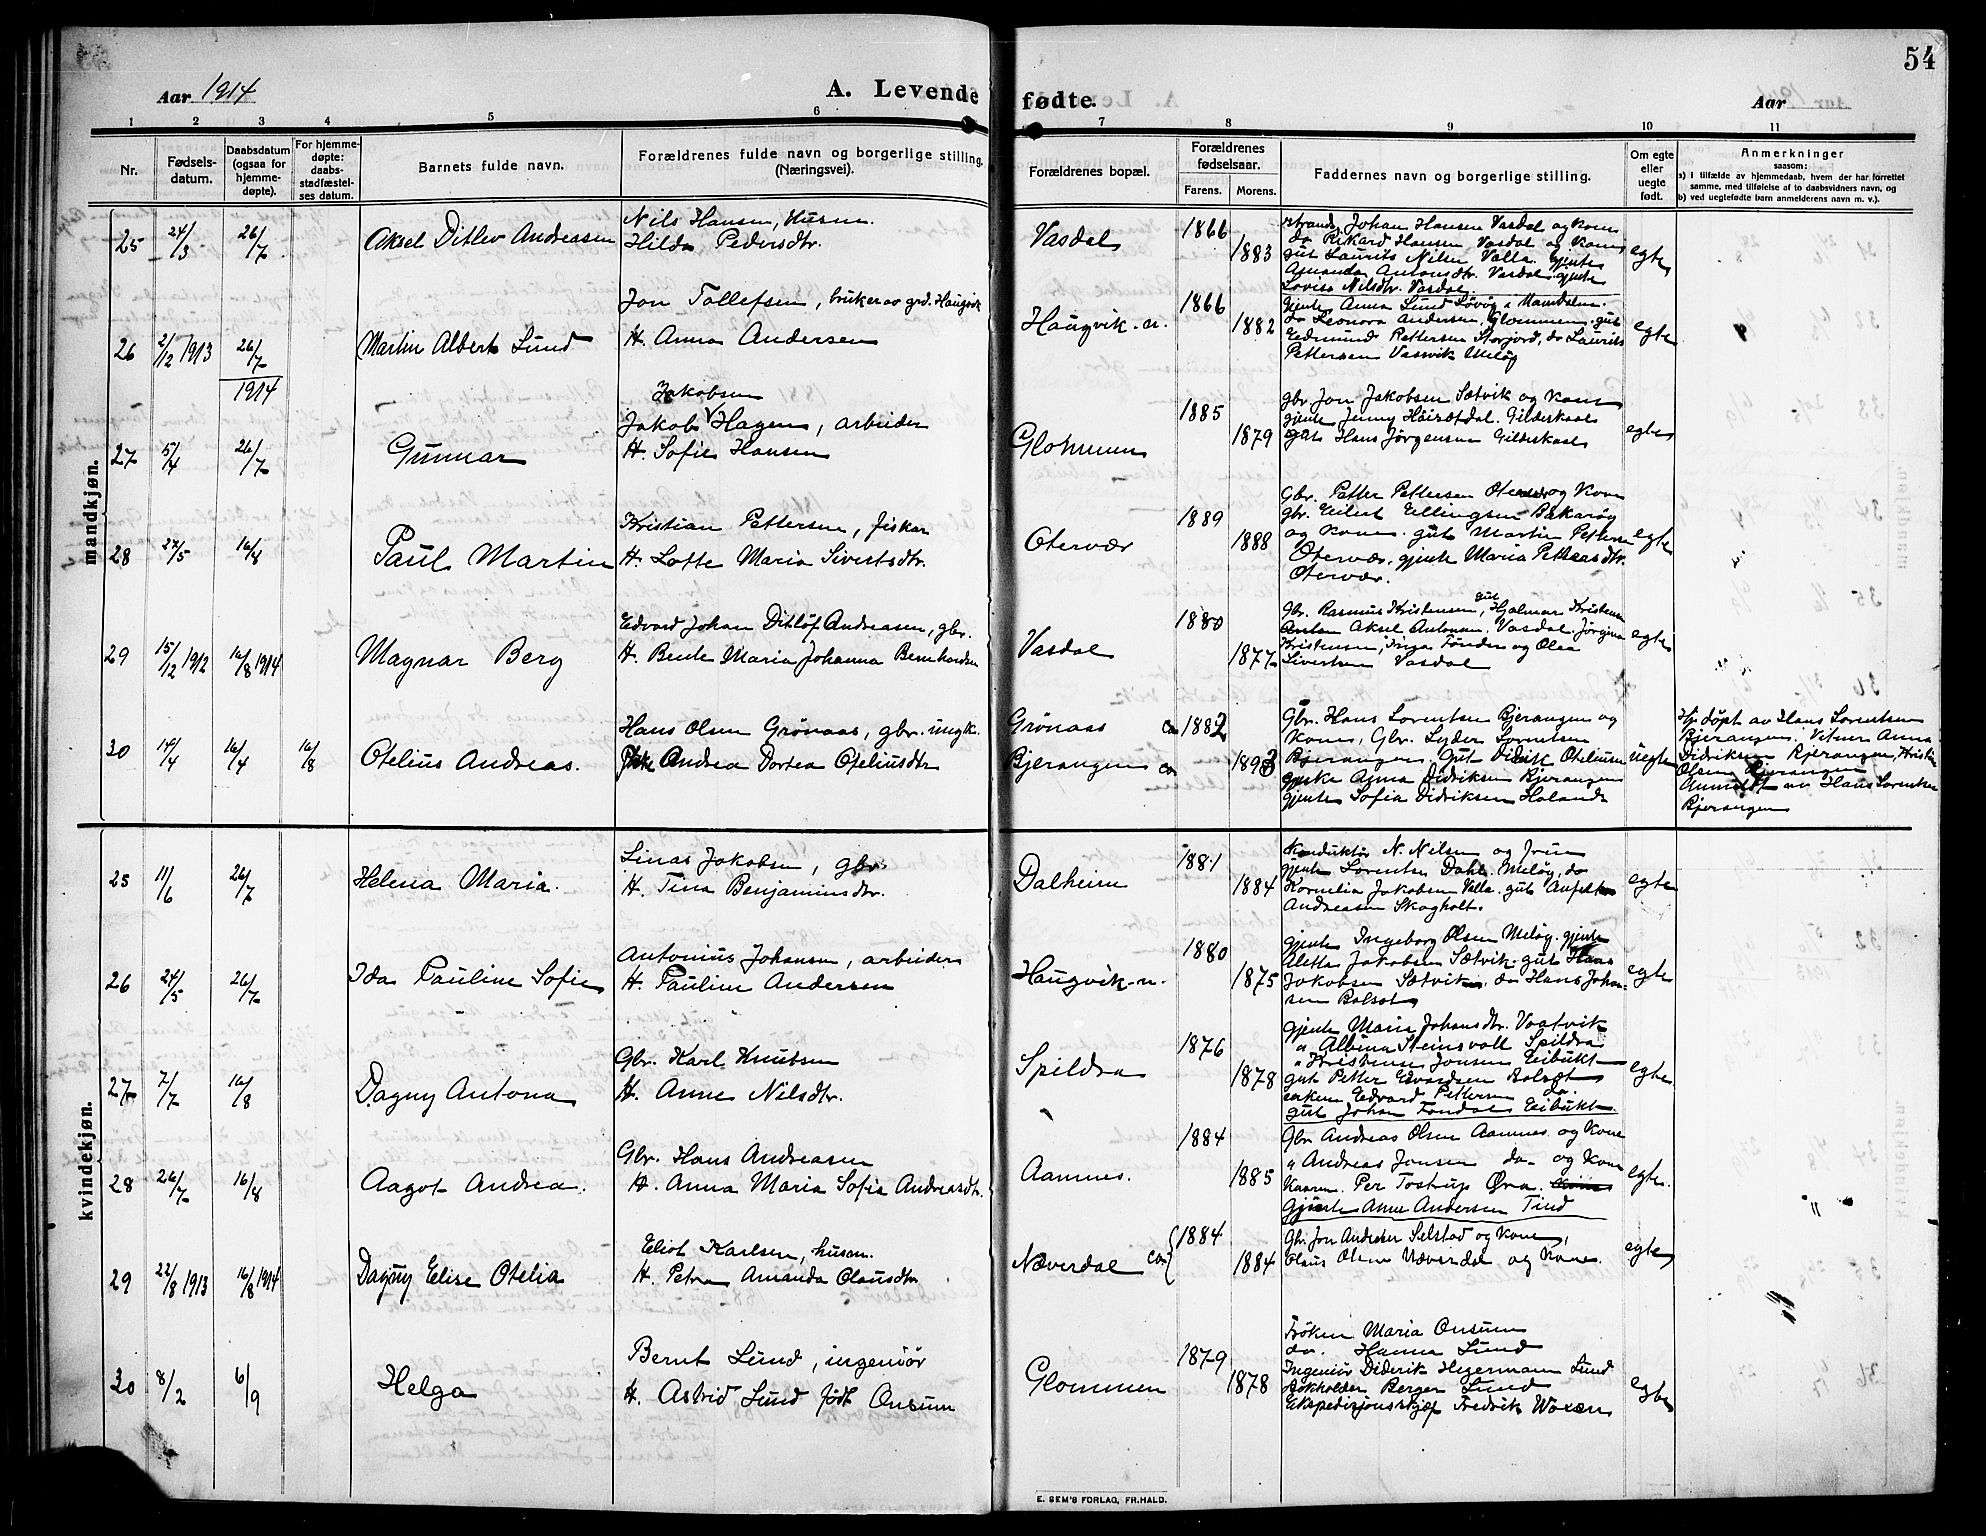 54
Aar 1914
A. Levende fødte.
Aar
1 2 3 4 5 6 7 8 9 10 11
Nr.
Fødsels-
datum.
Daabsdatum
(ogsaa for
hjemme-
døpte).
For hjemme-
døpte:
daabs-
stadfæstel-
ses datum.
Barnets fulde navn.
Forældrenes fulde navn og borgerlige stilling.
(Næringsvei).
Forældrenes bopæl.
Forældrenes
fødselsaar.
Farens. Morens.
Faddernes navn og borgerlige stilling.
Om egte
eller
uegte
født.
Anmerkninger
saasom:
a) I tilfælde av hjemmedaab, hvem der har forrettet
samme, med tilføielse af to daabsvidners navn, og
b) ved uegtefødte barn anmelderens navn m. v.).
mandkjøn.
25 24/3 26/7 Aksel Ditlev Andreassen
Nils Hansen, Husm.
Hilda Pedersdtr.
Vasdal 1866 1883
Johan Hansen Vasdal og kone
do Rikard Hansen Vasdal og Kone
gut Laurits Nilsen Valla. gjente
Amanda Antonsdtr. Vasdal gjente
Lovise Nilsdtr. Vasdal.
egte
26 2/12 1913 26/7 1914 Martin Albert Lund
Jon Tollefsen, bruker av grd. Haugvik
H. Anna Andersen
Haugvik-n. 1866 1882
gjente Anna Lund Løvøy i Namdalen.
do Leonora Andersen, Glommen. gut
Edmund Pettersen Storjord, do Laurits
Pettersen Vassvik Meløy
egte
27 5/4 26/7 Gunnar
Jakobsen
Jakob Hagen, arbeider
H. Sofie Hansen
Glommen 1885 1879
gbr Jon Jakobsen Sætvik og kone
gjente Jenny Gilderskaal
gut Hans Jørgensen Gilderskaal
egte
28 27/5 16/8 Paul Martin
Kristian Pettersen, fisker
H. Lotte Maria Sivertsdtr.
Otervær 1889 1888
Gbr. Petter Pettersen Otervær og Kone
gbr. Eilert Ellingsen
og Kone. gut Martin Pettersen
Otervær, gjente Maria Pettersdtr.
Otervær.
egte
29 15/12 1912 16/8 1914 Magnar Berg
Edvard Johan Ditløf Andreasen, gbr.
H. Bente Maria Johanna Bernhardsen
Vasdal 1880 1877
Gbr. Rasmus Kristensen, gut Hjalmar Kristensen
Aksel Antonsen. Vasdal Jørgine
Kristensen, Inga Tønder og Olea
Sivertsen Vasdal
egte
30 14/4 16/4 16/8 Otelius Andreas.
Hans Olsen Grönaas, gbr. ungk.
Andrea Dortea Oteliusdtr
Grönaas ca 1882
Bjerangen ca 1893
Gbr. Hans Lorentsen Bjerangen og
Kone, Gbr. Lyder Lorentsen
Bjerangen, Gut Didrik Oteliusen
gjente Anna Didriksen Bjerangen
gjente Sofia Didriksen Holand
uegte
Hj. døpt av Hans Lorentsen
Bjerangen. Vitner Anna
Didriksen Bjerangen, Kristine
Olsen Bjerangen
Anmeldt av Hans Lorentsen
Bjerangen
kvindekjøn.
25 11/6 26/7 Helena Maria.
Linas Jakobsen, gbr
H. Tina Benjaminsdtr.
Dalheim 1881 1884
Konduktör N. Nilsen og fru
gjente Lorentse Dahl. Meløy, do
Kornelia Jakobsen Valla. gut
Andreasen Skogholt.
egte
26 24/5 26/7 Ida Pauline Sofie
Antonius Johansen, arbeider
H. Pauline Andersen
Haugvik-n. 1880 1875
gjente Ingeborg Olsen Meløy. gjente
Aletta Jakobsen Sætvik. gut Hans
Jakobsen Sætvik, do Hans Johan-
sen Bolsøt
egte
27 7/7 16/8 Dagny Antona
Gbr. Karl Knutsen
H. Anne Nilsdtr.
Spildra 1876 1878
gjente Maria Johansdtr. Vaatvik
" Albina Steinsvoll Spildra
" Kristense Jonsen Eibukt
gut Petter Edvardsen Bolsøt
enkem Edvard Pettersen do.
gut Johan Tøndal Eibukt.
egte
28 26/7 16/8 Aagot Andrea.
Gbr. Hans Andreasen
H. Anna Maria Sofia Andreasdtr.
Aamnes. 1884 1885
Gbr Andreas Olsen Aamnes og Kone
" Andreas Jonsen do og Kone
Kaaren. Per Tostrup Øra.
Gjente Anne Andersen Tind
egte.
29 22/8 1913 16/8 1914 Dagny Elise Otelia
Eliot Karlsen, husm.
H. Petra Amanda Olausdtr.
Næverdal ca. 1884 1884
Gbr. Jon Andersen Selstad og Kone,
Olaus Olsen Næverdal og Kone.
egte
30 8/2 6/9 Helga
Bernt Lund, ingeniör
H. Astrid Lund född Onsum
Glommen 1879 1878
Fröken Maria Onsum
do. Hanna Lund
Ingeniör Diderik Hegermann Lund
Bokholder Berger Lund
Ekspedisjonschef Fredrik Waxen
egte
E. SEM'S FORLAG, FR.HALD.